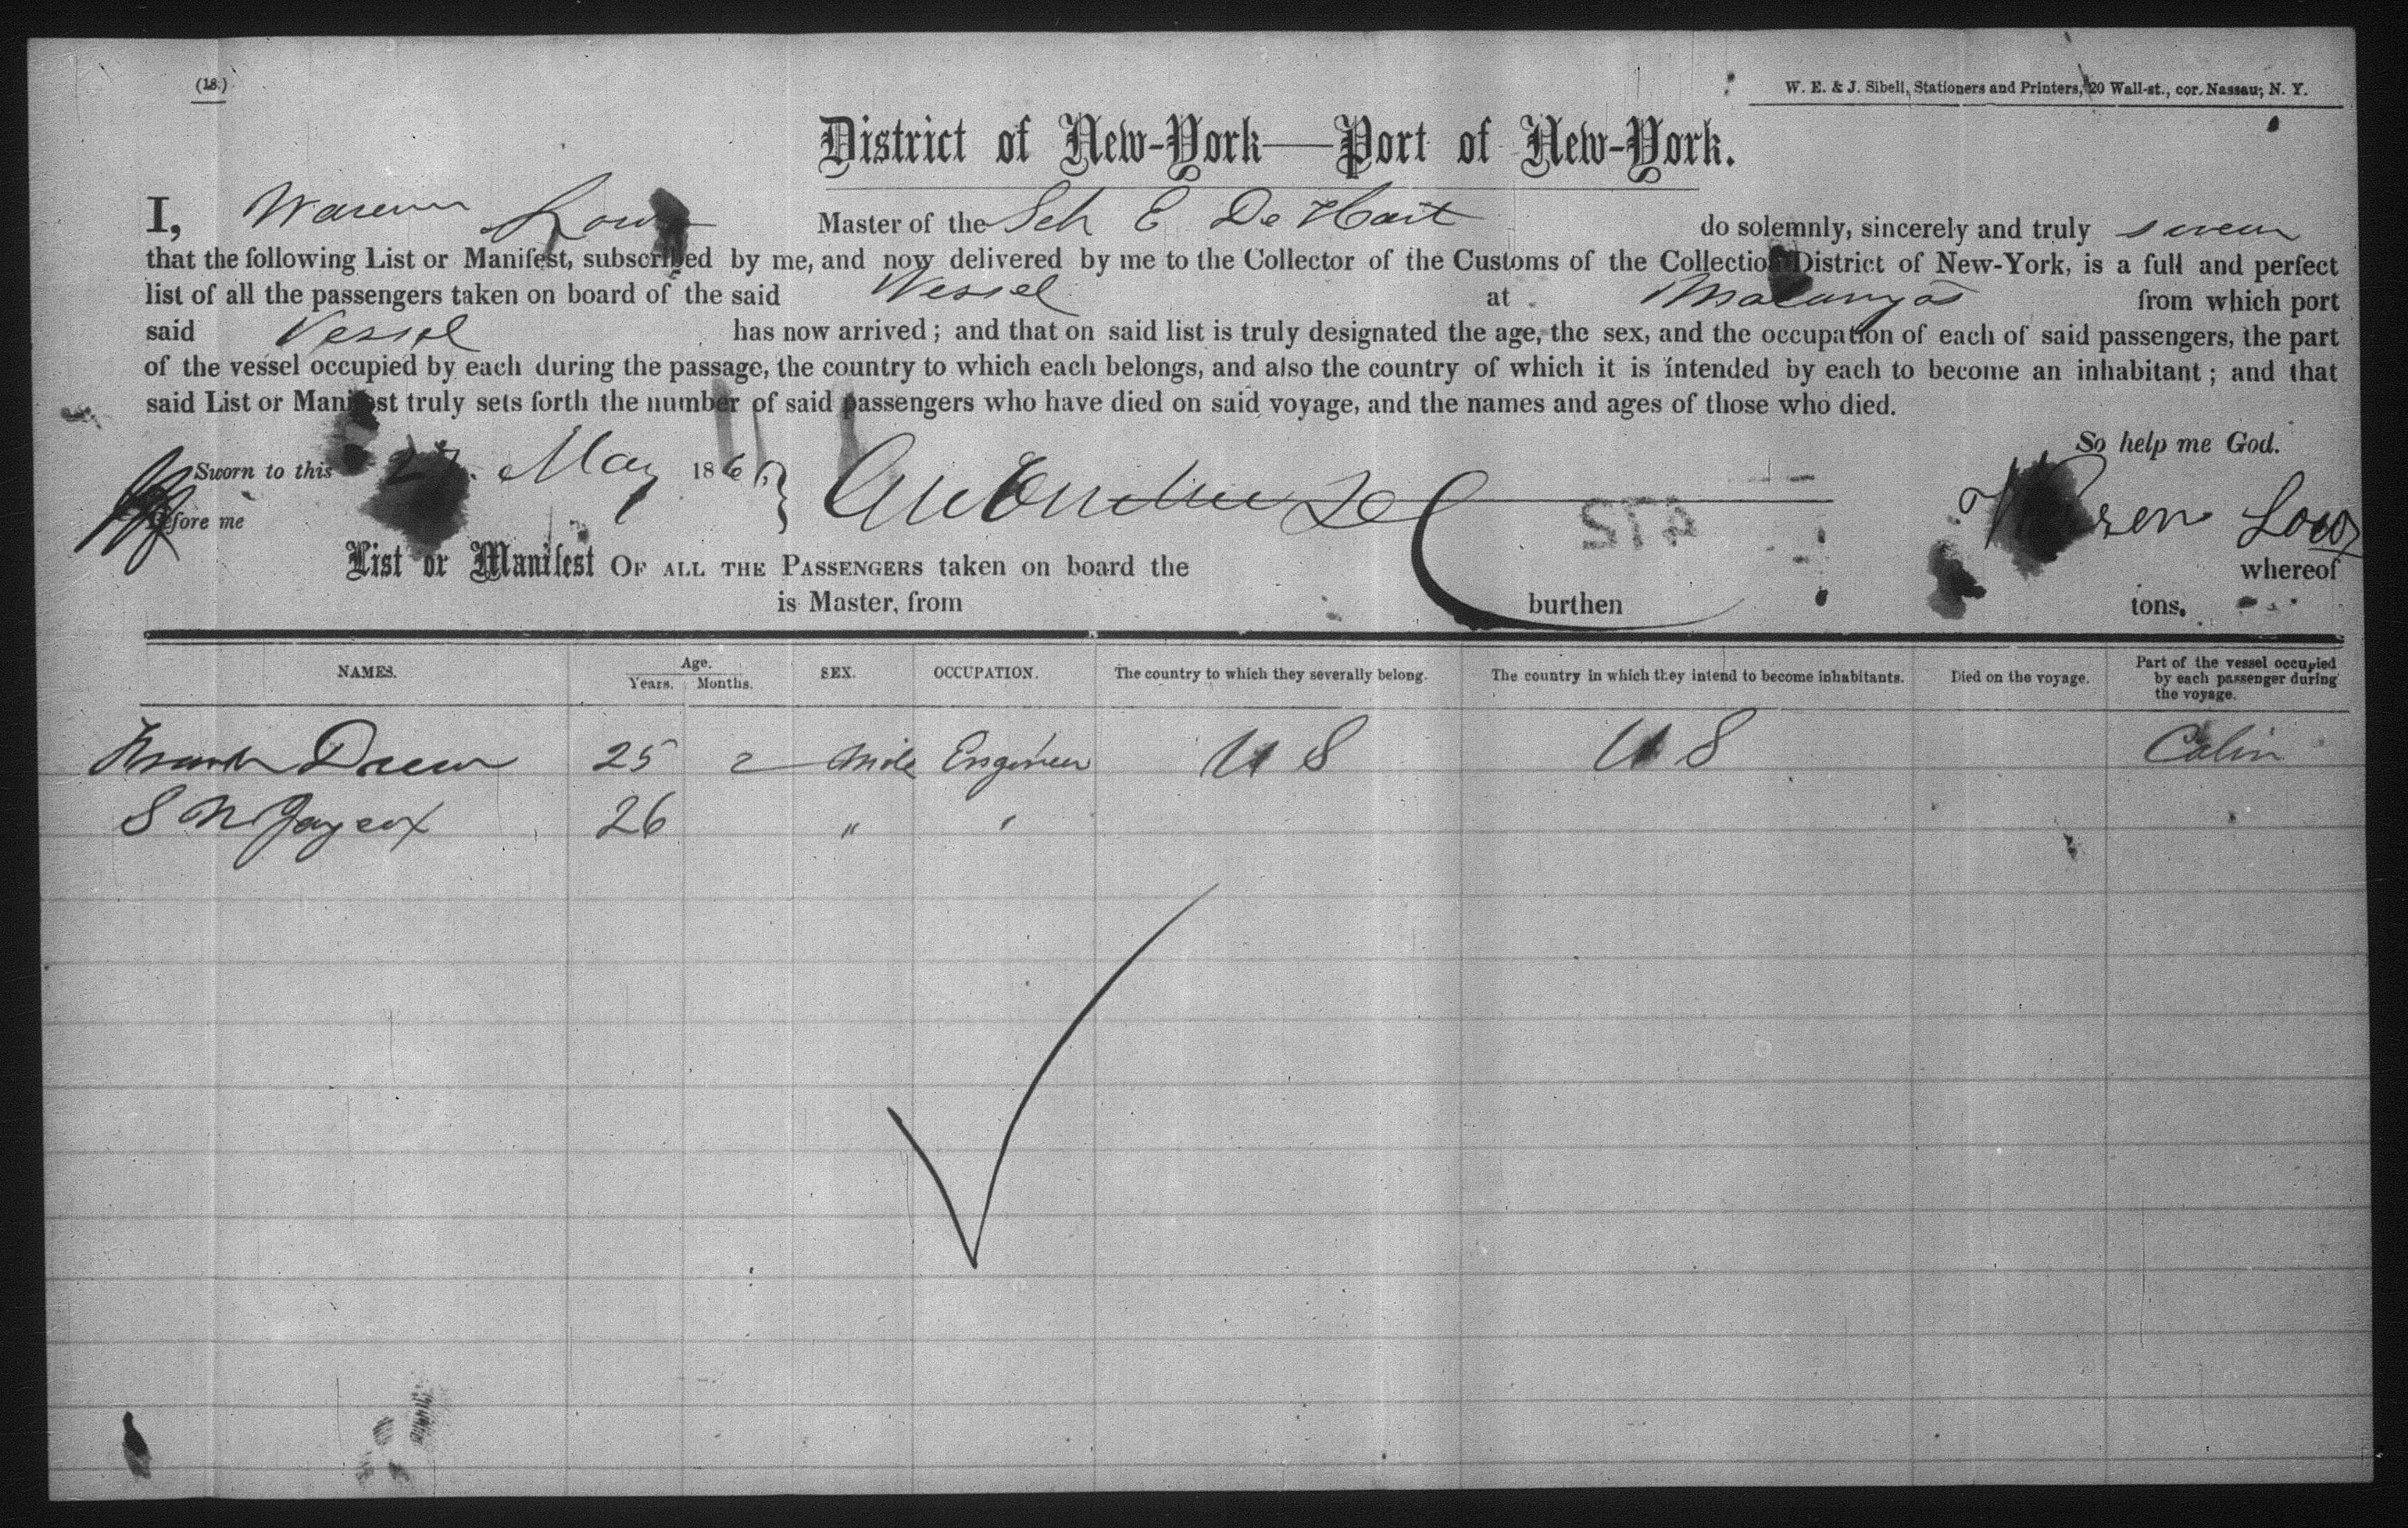 (18.)
W. E. & J. Sibell, Stationers and Printers, 20 Wall-st., cor. Nassau, N. Y.
District of New-York—Port of New-York.
I, Warren Low Master of the Sch E De Hart do solemnly, sincerely and truly swear
that the following List or Manifest, subscribed by me, and now delivered by me to the Collector of the Customs of the Collection District of New-York, is a full and perfect
list of all the passengers taken on board of the said Vessel at from which port
said Vessel has now arrived; and that on said list is truly designated the age, the sex, and the occupation of each of said passengers, the part
of the vessel occupied by each during the passage, the country to which each belongs, and also the country of which it is intended by each to become an inhabitant; and that
said List or Manifest truly sets forth the number of said passengers who have died on said voyage, and the names and ages of those who died.
So help me God.
Sworn to this 27 May 186
Before me
Warren Low
List or Manifest OF ALL THE PASSENGERS taken on board the whereof
is Master, from burthen tons.
NAMES. Age. Years. Months. SEX. OCCUPATION. The country to which they severally belong. The country in which they intend to become inhabitants. Died on the voyage. Part of the vessel occupied by each passenger during the voyage.
Frank Drew 25 2 Male Engineer U S U S Cabin
S N Jaycox 26 " "